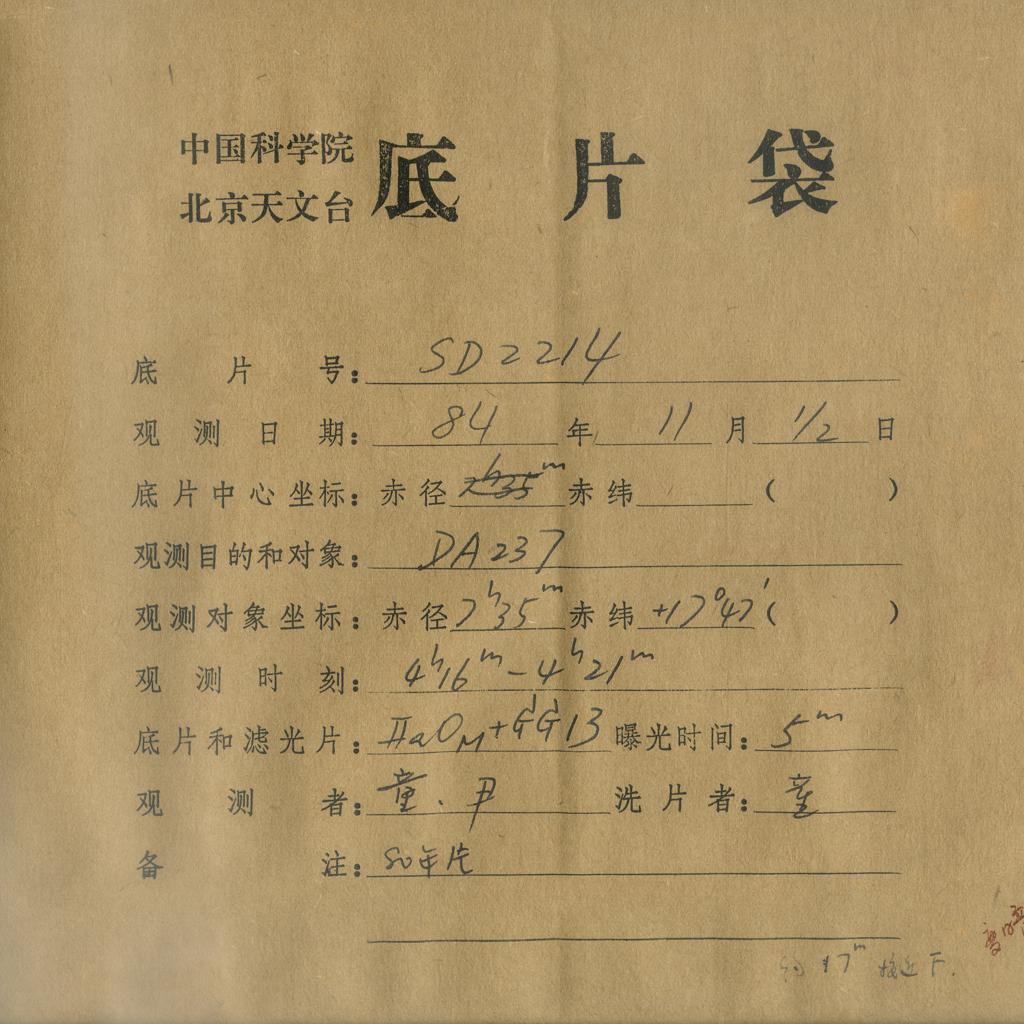 中国科学院
北京天文台
底片袋
底片号：SD2214
观测日期：84年11月1/2日
底片中心坐标：赤径7h35m赤纬（ ）
观测目的和对象：DA237
观测对象坐标：赤径7h35m赤纬+17°47′（ ）
观测时刻：4h16m-4h21m
底片和滤光片：ⅡaOM+GG13曝光时间：5m
观测者：童.尹洗片者：童
备注：80年片
17m 接近下.